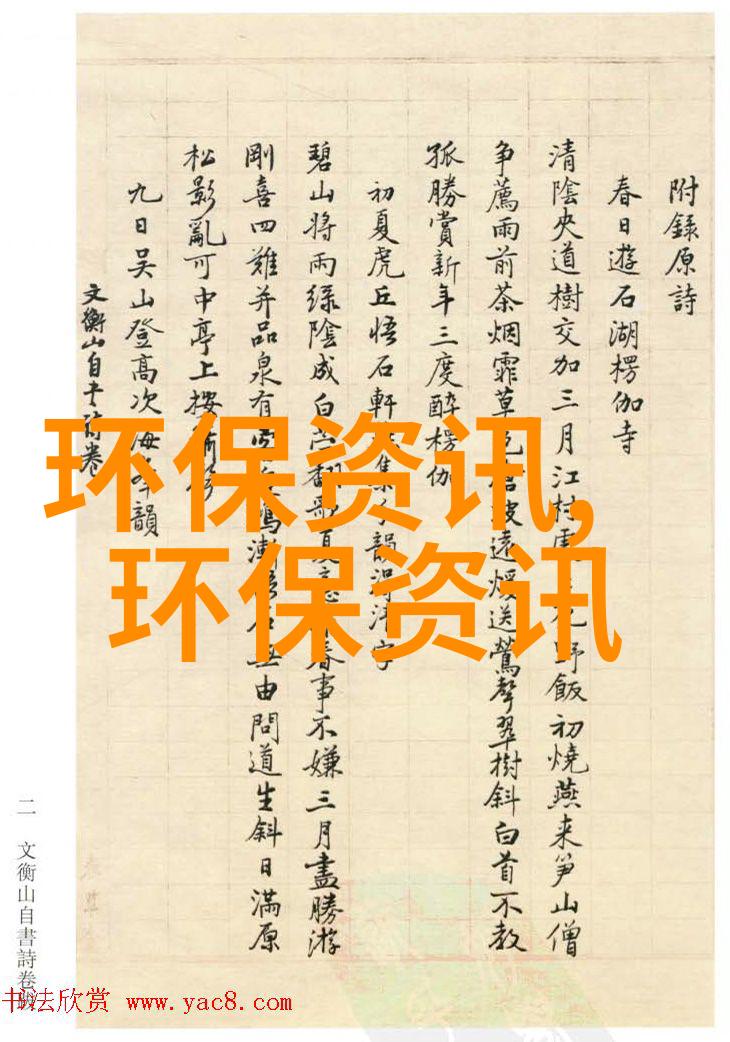 附錄原詩
春日遊石湖楞伽寺
清陰央道樹交加三月江村野飯初燒燕来笋山僧
争薦雨前茶烟霏草色波遠煖送鶯聲翠樹斜白首不教
孤勝賞新年三度醉楞伽
初夏虎丘悟石軒集韻得字
碧山將雨綠陰成白苧翻歌夏春事不嫌三月盡勝游
剛喜四難并品泉有由問道生斜日滿原
松影亂可中亭上按
九日吳山登高次韻
文衡山自書詩卷
二 文衡山自書詩卷跋
环保资讯,
环保资讯
书法欣赏 www.yac8.com